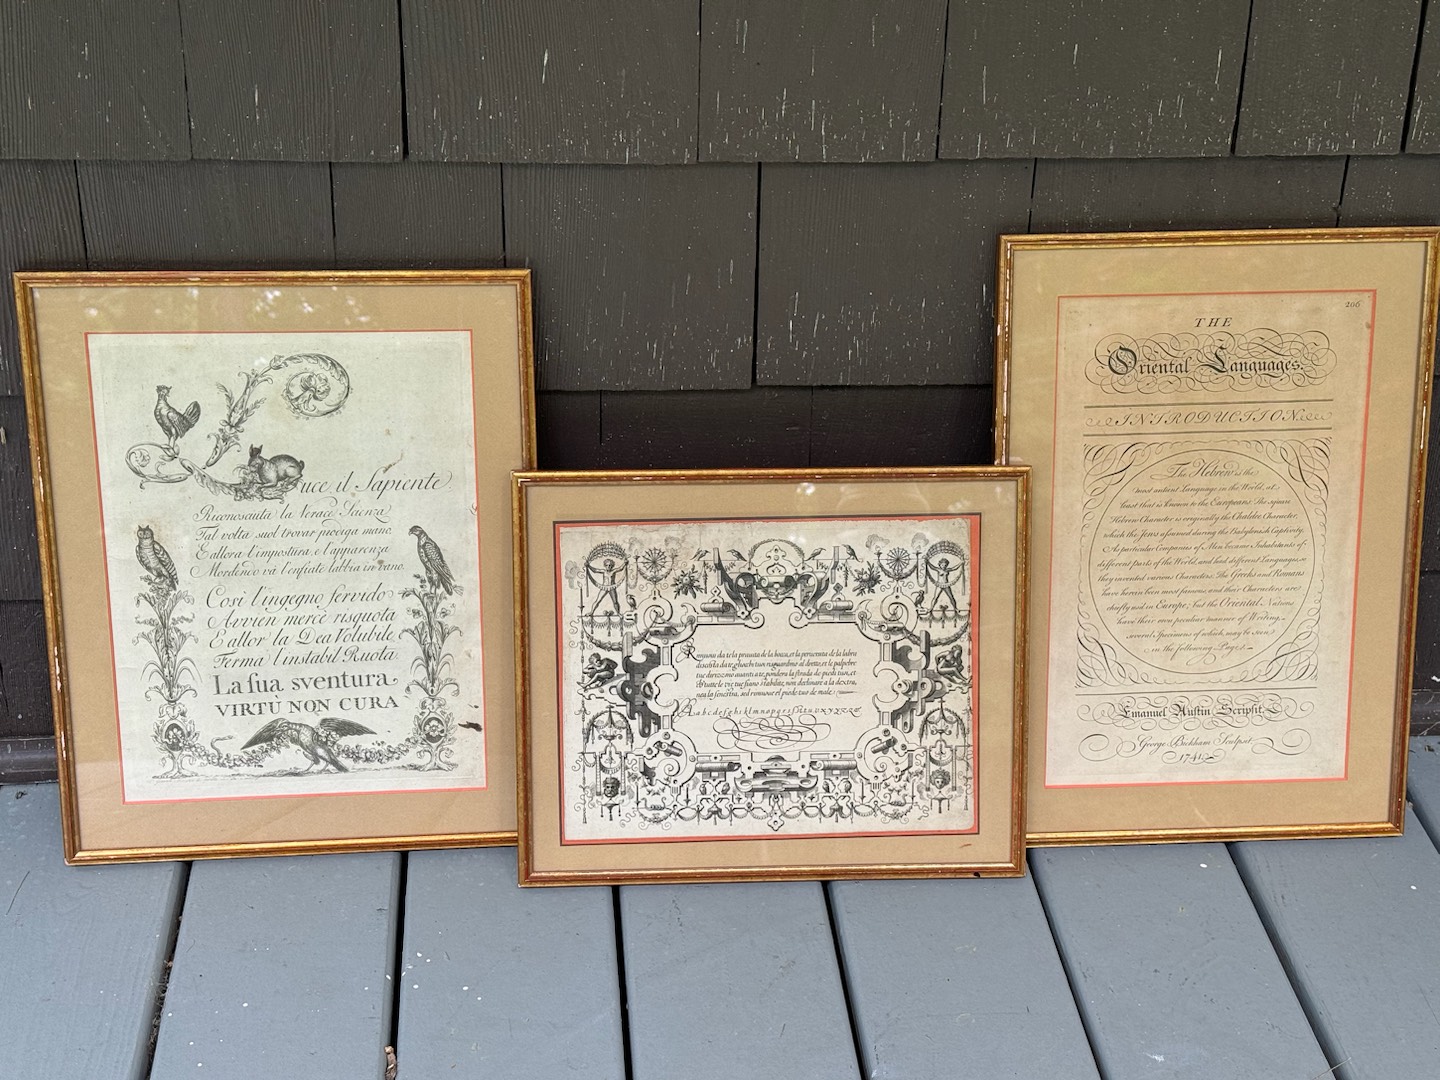 Luce il Sapiente
Riconosciuta la Verace Scienza
Tal volta suol trovar provvida mano
E allora l'impostura, e l'apparenza
Mordendo va l'enfiate labbia in vano.
Così l'ingegno fervido
Avvien mercè risquota
E allor la Dea Volubile
Ferma l'instabil Ruota
La sua sventura
VIRTÙ NON CURA
Remuovi da te la prauita de la bocca, et la peruersita de la labra
discosta da te, gliocchi tuoi riguardino al dretto, et le palpebre
tue dirizzino auanti a te, pondera la strada de piedi tuoi, et
tutte le vie tue siano stabilite, non declinare a la dextra,
nea la senestra, sed rimuoue el piede tuo de male.
A a b c d e f g h i k l m n o p q r s t u v x y z
206
THE
Oriental Languages.
INTRODUCTION
The Hebrew is the
most antient Language in the World, at
least that is known to the Europeans. The square
Hebrew Character is originally the Chaldee Character,
which the Jews assumed during the Babylonish Captivity.
As particular Companies of Men became Inhabitants of
different parts of the World, and had different Languages, so
they invented various Characters. The Greeks and Romans
have herein been most famous, and their Characters are
chiefly used in Europe; but the Oriental Nations
have their own peculiar manner of Writing,
several Specimens of which, may be seen
in the following Pages.
Emanuel Austin Scripsit.
George Bickham Sculpsit.
1741